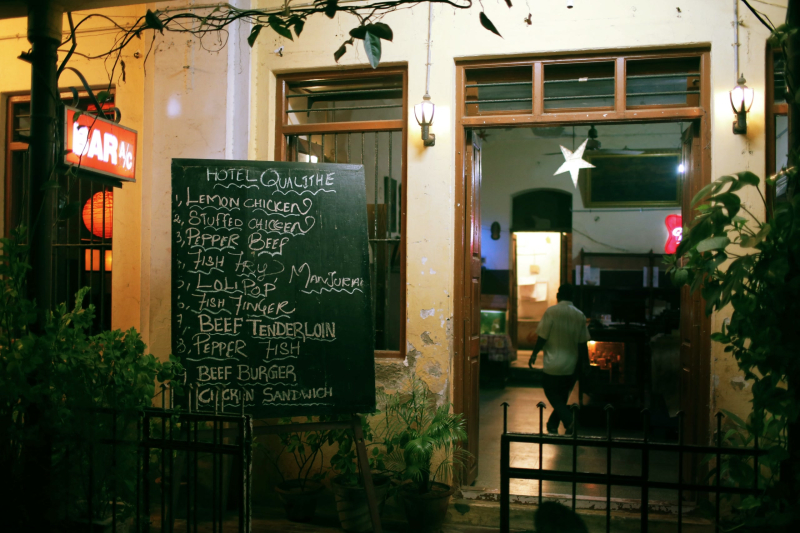 BAR A/C
HOTEL QUALITHE
1, LEMON CHICKEN
2, STUFFED CHICKEN
3, PEPPER BEEF
FISH FRY MANJURAI
5, LOLIPOP
6, FISH FINGER
7, BEEF TENDERLOIN
8, PEPPER FISH
BEEF BURGER
CHICKEN SANDWICH